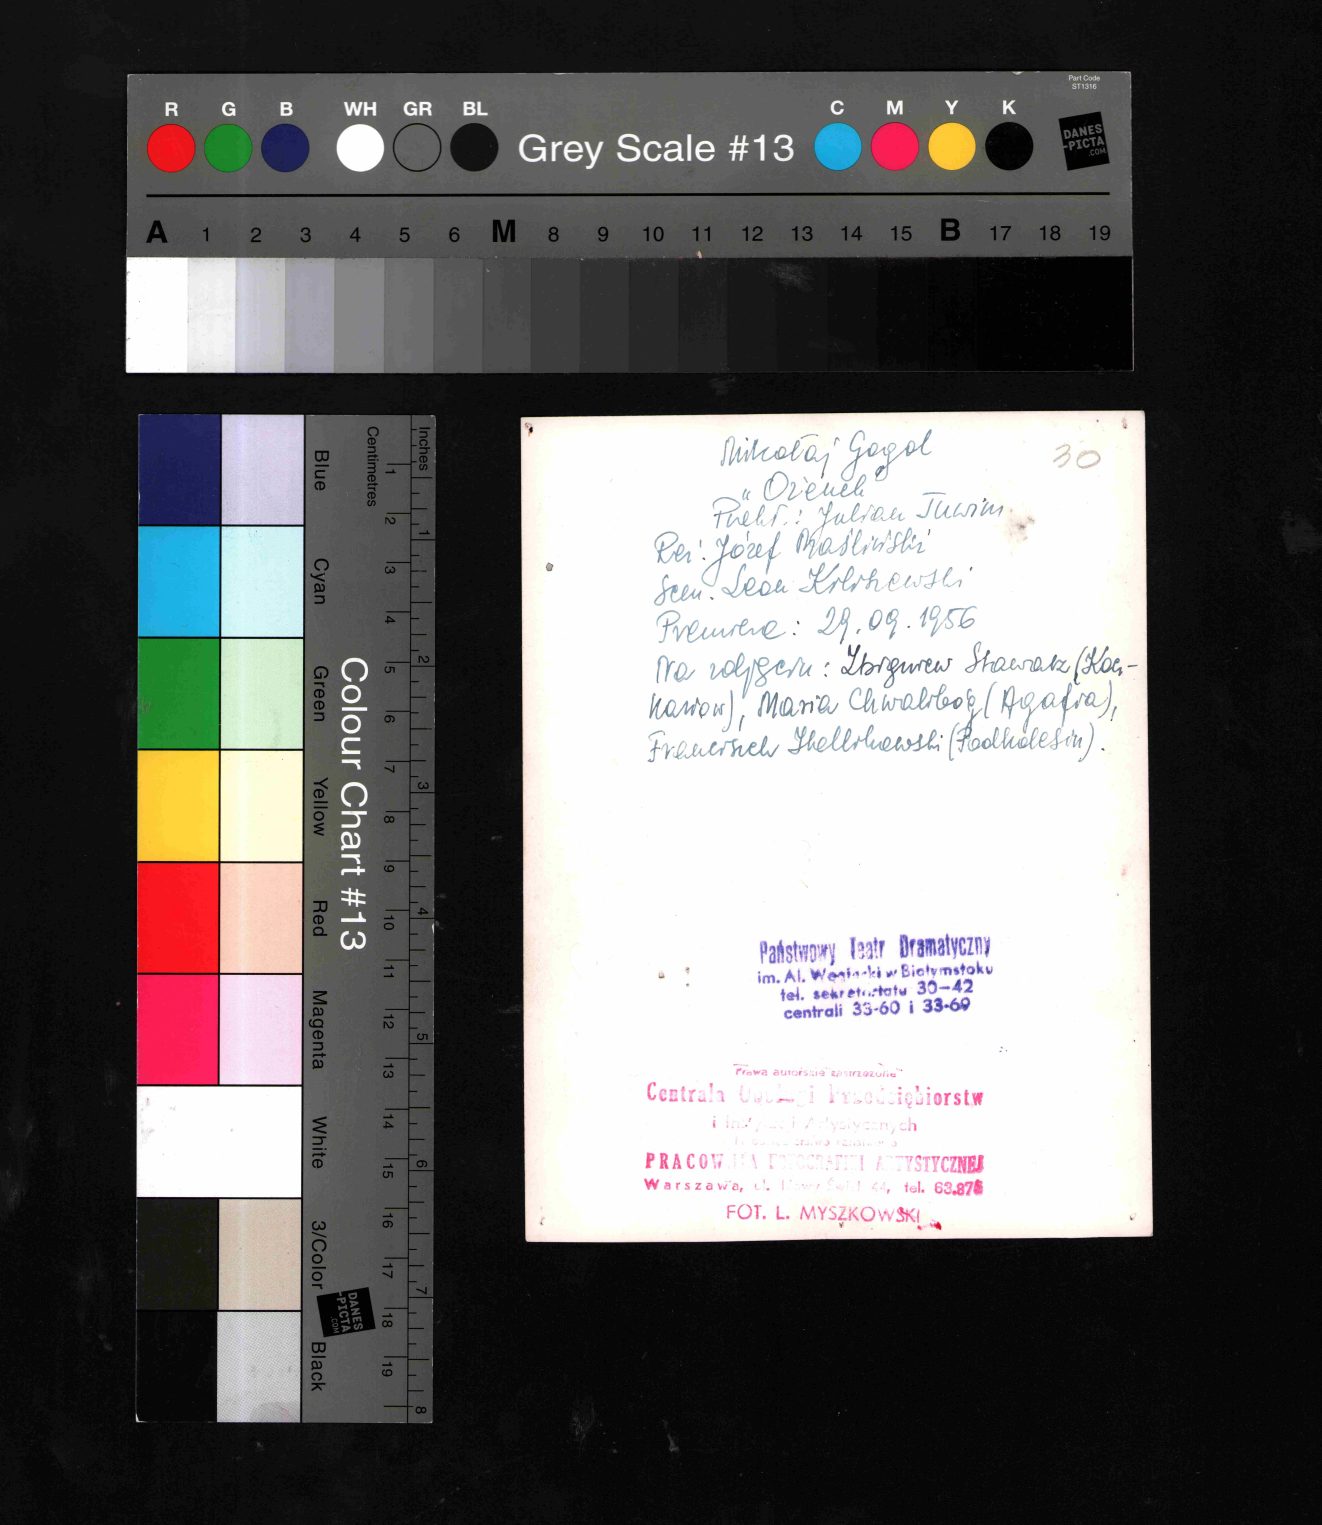 Part Code
ST1316
R G B WH GR BL Grey Scale #13 C M Y K
DANES
-PICTA
.COM
A 1 2 3 4 5 6 M 8 9 10 11 12 13 14 15 B 17 18 19
Colour Chart #13
Blue Cyan Green Yellow Red Magenta White 3/Color Black
Centimetres 1 2 3 4 5 6 7 8 9 10 11 12 13 14 15 16 17 18 19
Inches 1 2 3 4 5 6 7 8
DANES
-PICTA
.COM
30
Mikołaj Gogol
„Ożenek”
Przekł.: Julian Tuwim
Reż. Józef Maśliński
Scen. Leon
Premiera: 29.09.1956
Na zdjęciu: Zbigniew Stawarz (Kocz-
kariow), Maria Chwalibóg (Agafia),
Franciszek (Podkolesin).
Państwowy Teatr Dramatyczny
im. Al. Węgierki w Białymstoku
tel. sekretariatu 30-42
centrali 33-60 i 33-69
Prawa autorskie zastrzeżone
Centrala Obsługi Przedsiębiorstw
i Instytucji Artystycznych
PRACOWNIA FOTOGRAFIKI ARTYSTYCZNEJ
Warszawa, ul. Nowy Świat 44, tel. 63.875
FOT. L. MYSZKOWSKI